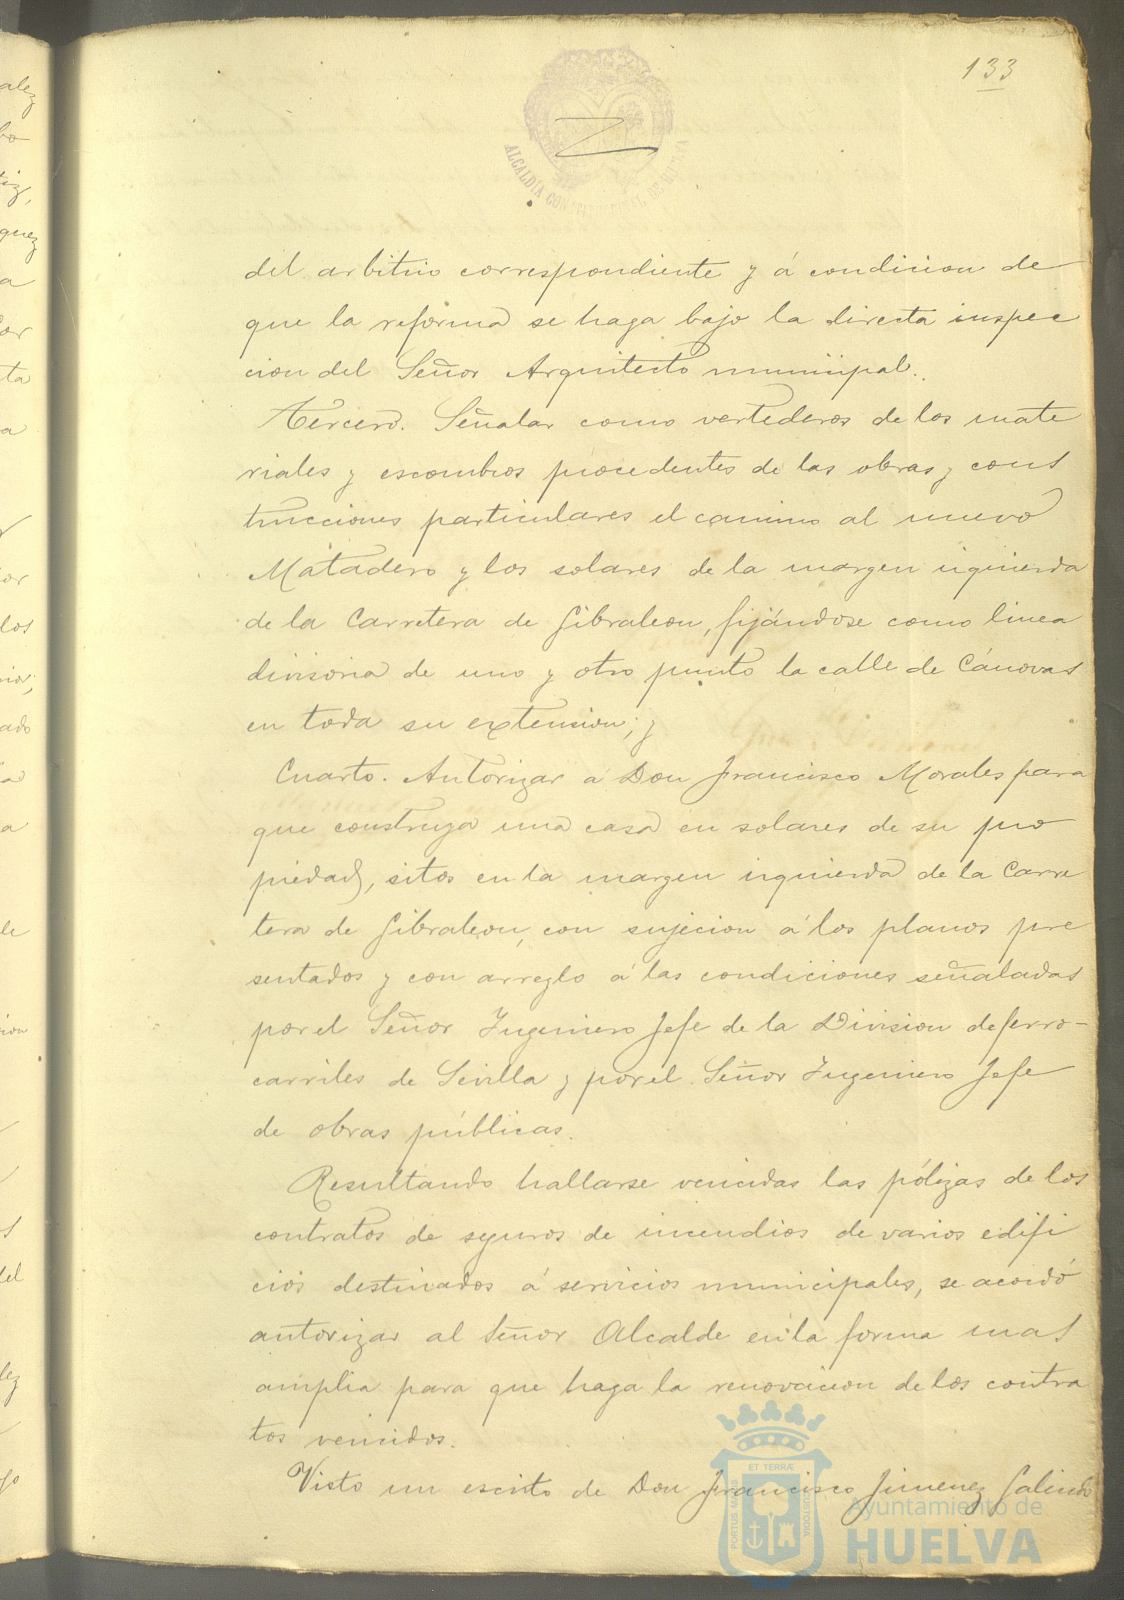 133
ALCALDÍA CONSTITUCIONAL DE HUELVA
del arbitrio correspondiente y á condicion de
que la reforma se haga bajo la directa inspec
cion del Señor Arquitecto municipal.
Tercero. Señalar como vertederos de los mate
riales y escombros procedentes de las obras y cons
trucciones particulares el camino al nuevo
Matadero y los solares de la margen izquierda
de la Carretera de Gibraleon, fijándose como linea
divisoria de uno y otro punto la calle de Cánovas
en toda su extension; y
Cuarto. Autorizar á Don Francisco Morales para
que construya una casa en solares de su pro
piedad, sitos en la margen izquierda de la Carre
tera de Gibraleon, con sujecion á los planos pre
sentados y con arreglo á las condiciones señaladas
por el Señor Ingeniero Jefe de la Division de ferro-
carriles de Sevilla y por el Señor Ingeniero Jefe
de obras públicas.
Resultando hallarse vencidas las pólizas de los
contratos de seguros de incendios de varios edifi
cios destinados á servicios municipales, se acordó
autorizar al Señor Alcalde en la forma mas
amplia para que haga la renovacion de los contra
tos vencidos.
Visto un escrito de Don Francisco Jimenez Galindo
PORTUS MARIS ET TERRÆ CUSTODIA
Ayuntamiento de
HUELVA